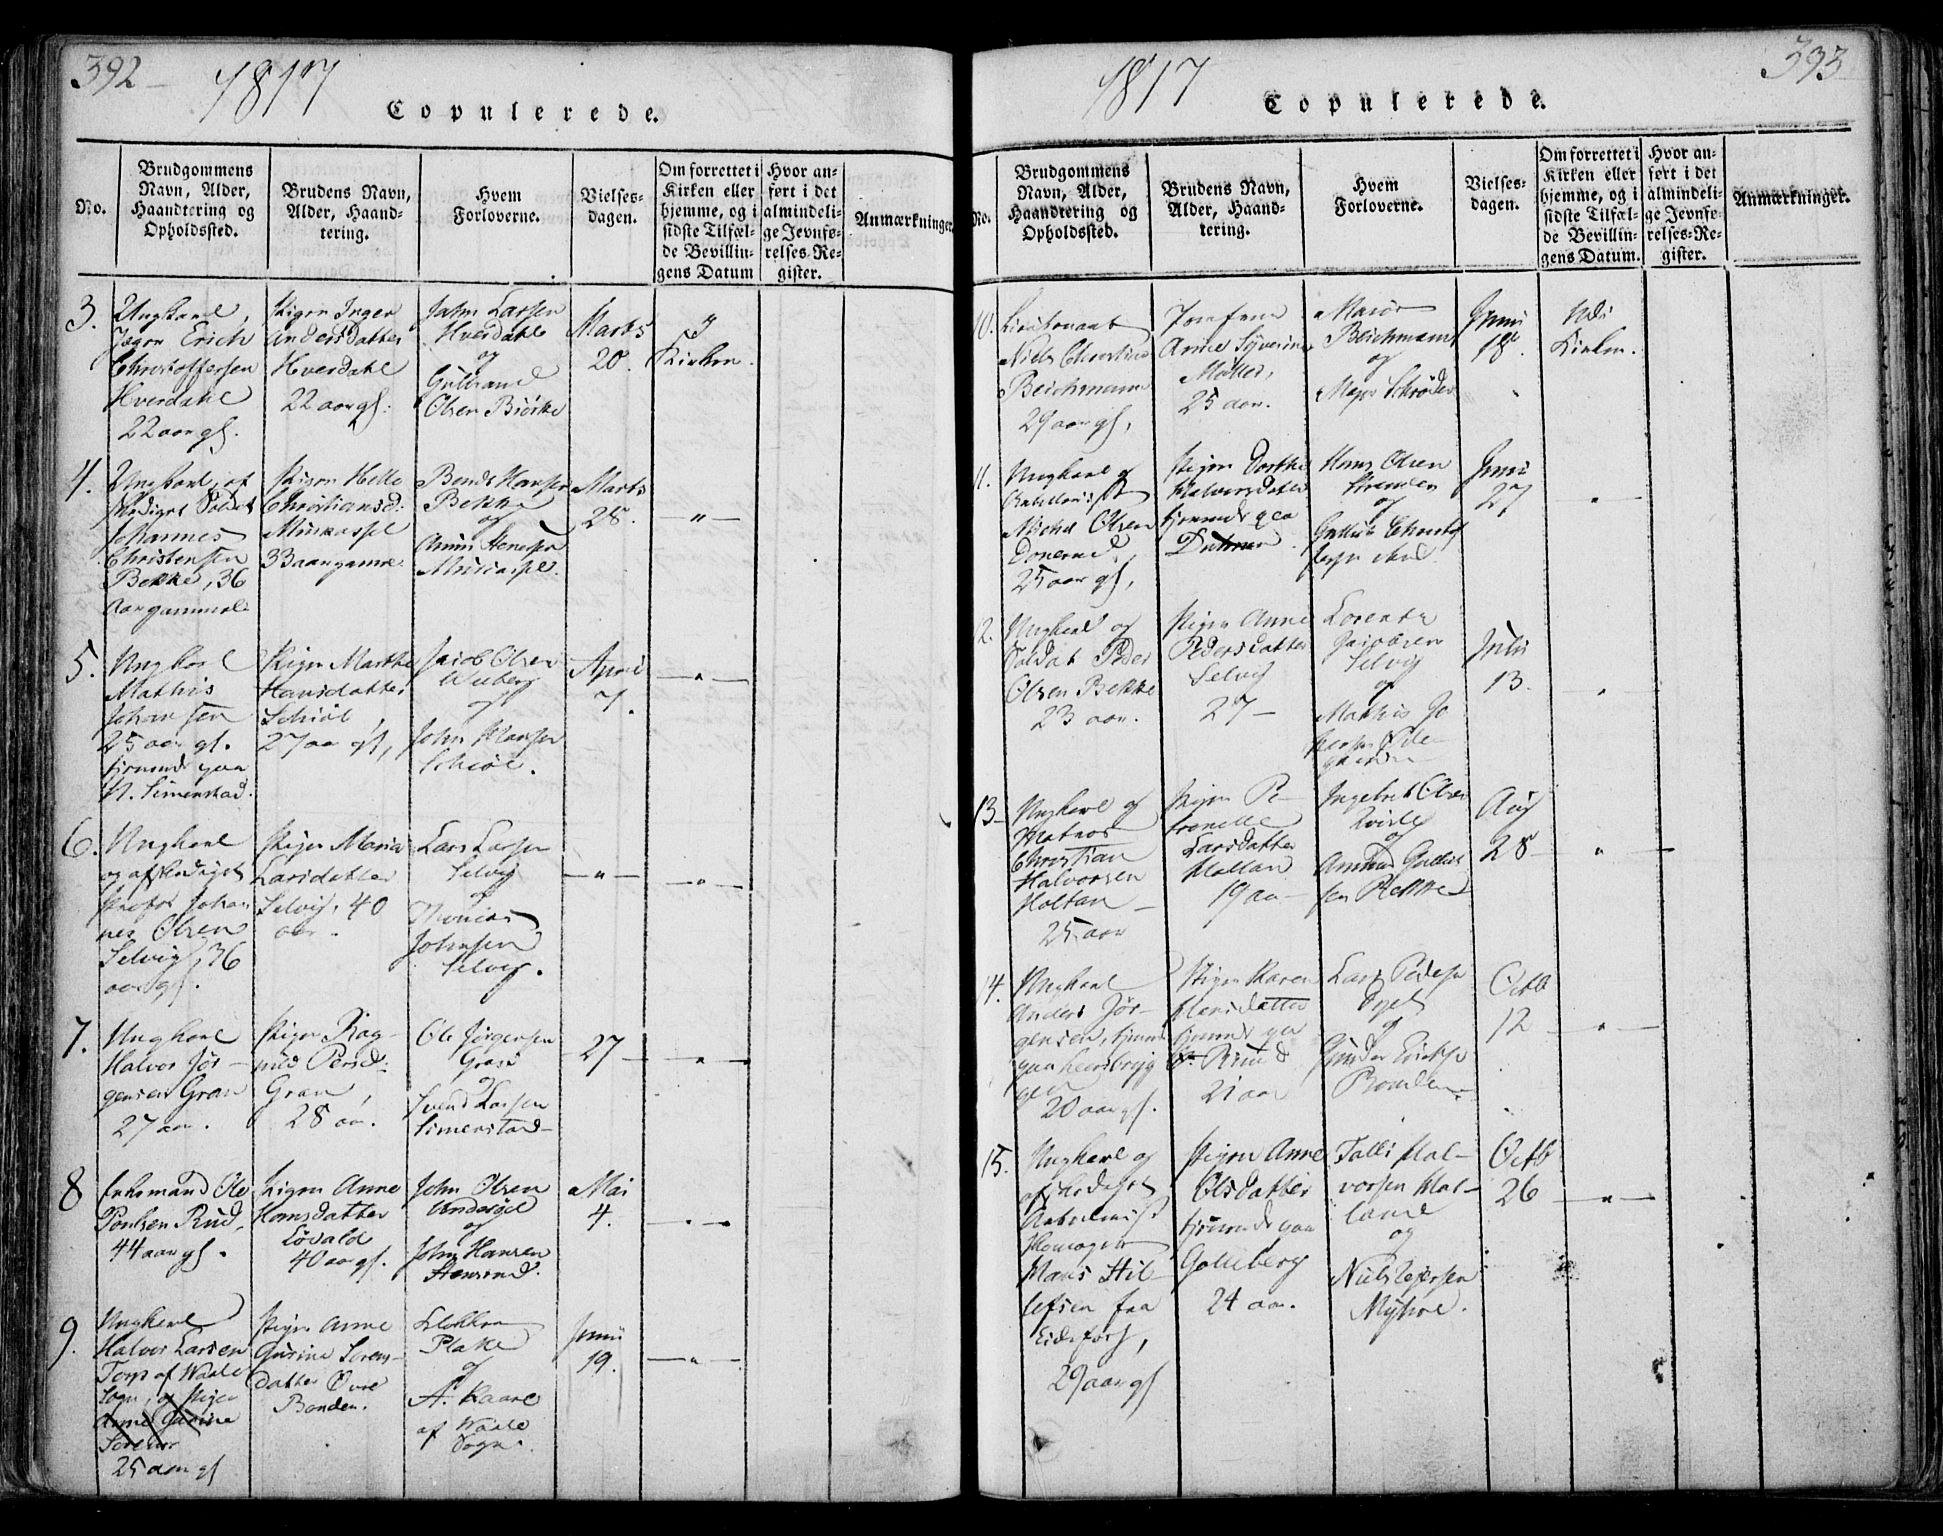 392
1817
Copulerede.
No.
Brudgommens
Navn, Alder,
Haandtering og
Opholdssted.
Brudens Navn,
Alder, Haand-
tering.
Hvem
Forloverne.
Vielses-
dagen.
Om forrettet i
Kirken eller
hjemme, og i
sidste Tilfæl-
de Bevillin-
gens Datum
Hvor an-
ført i det
almindeli-
ge Jevnfø-
relses-Re-
gister.
Anmærkninger.
3.
Ungkarl,
Erich
Christoffersen
Hverdahl
22 aar gl.
Pigen Inger
Andersdatter
Hverdahl
22 aar gl:
John Larsen
Hverdahl
og
Gulbrand
Olsen Biørke
Marts
20.
I
Kirken.
4.
Ungkarl, af
skediget Soldat
Johannes
Christensen
Bekke, 36
Aar gammel
Pigen Helle
Christiansd:
33 aar gamle
Bendt Hansen
Bekke
og
Marts
28.
— " —
5.
Ungkarl
Mathis
Johansen
25 aar gl.
tienende paa
N. Simenstad.
Pigen Marthe
Hansdatter
Schiøl,
27 aar gl,
Jacob Olsen
Wiiberg
og
John Hansen
Schiøl.
April
7.
— " —
6.
Ungkarl
og afskediget
Johan
nes Olsen
Selvig, 36
aar gl.
Pigen Maria
Larsdatter
Selvig, 40
aar.
Lars Larsen
Selvig
og
Johnsen
Selvig.
— " —
— " —
7.
Ungkarl
Halvor Jør-
gensen Gran
27 aar.
Pigen Rag-
nild Persd:
Gran,
28 aar.
Ole Jørgensen
og
Svend Larsen
Simenstad
27
— " —
8
Enkemand Ole
Poulsen Rud,
44 aar gl.
Pigen Anne
Hansdatter
Løvald
40 aar gl.
John Olsen
og
John Hansen
Stensrud.
Mai
4.
— " —
9.
Ungkarl
Halvor Larsen
Torp af Waale
Sogn, og Pigen
Anne Gurine
25 aar gl
Pigen Anne
Gurine Sørens-
datter Øvre
Bonden.
Klokker
Plathe
og
A. Kaare
af Waale
Sogn.
Junii
19.
— " —
1817
393
Copulerede.
No.
Brudgommens
Navn, Alder,
Haandtering og
Opholdssted.
Brudens Navn,
Alder, Haand-
tering.
Hvem
Forloverne.
Vielses-
dagen.
Om forrettet i
Kirken eller
hjemme, og i
sidste Tilfæl-
de Bevillin-
gens Datum.
Hvor an-
ført i det
almindeli-
ge Jevnfø-
relses-Re-
gister.
Anmærkninger.
10.
Lieutenant
Niels Christian
Beichmann
29 aar gl,
Jomfrue
Anne Syverine
Møller,
25 aar.
Major
Beichmann
og
Major Schrøder
Junii
18
Kirken.
11.
Ungkarl og
Artillerist
Michel Olsen
25 aar gl,
Pigen Dorthe
Halvorsdatter
tienende paa
Hans Olsen
og
Junii
27
— " —
12.
Ungkarl og
Soldat Peder
Olsen Bekke
23 aar.
Pigen Anne
Pedersdatter
Selvig
27 —
Lorentz
Jacobsen
Selvig
og
Mathis Jo
Julii
13.
13
Ungkarl og
Matros
Christian
Halvorsen
Holtan
25 aar
Pigen Pe-
tronelle
Larsdatter
Holtan
19 aar —
Ingebret Olsen
og
Amund Gulbrd
sen Bekke
Aug
28
" —
14.
Ungkarl
Anders Jør-
gensen, tienende
20 aar gl.
Pigen Karen
Hansdatter
tienende paa
21 aar
Lars Peders
og
Gunder Erichs
Bonden.
Octb
12
— " —
15.
Ungkarl og
afskediget
Artillerist
Hans Hil-
lefsen fra
Eidsfoss,
29 aar gl
Pigen Anne
Olsdatter
tienende paa
Golleberg
24 aar.
Tolli Hal-
vorsen Hol-
lane
og
Niels Pejersen
Myhre.
Octb
26
— " —